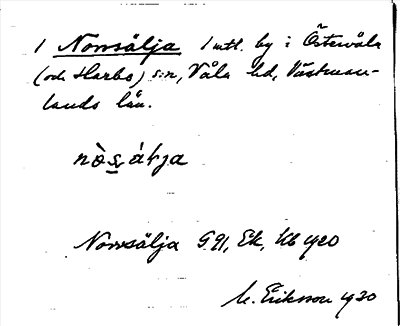 1 Norrsälja 1 mtl. by i Östervåla
(och Harbo) s:n, Våla hd, Västman-
lands län.
Norrsälja G 91, Ek, Kb 1920
M. Eriksson 1930